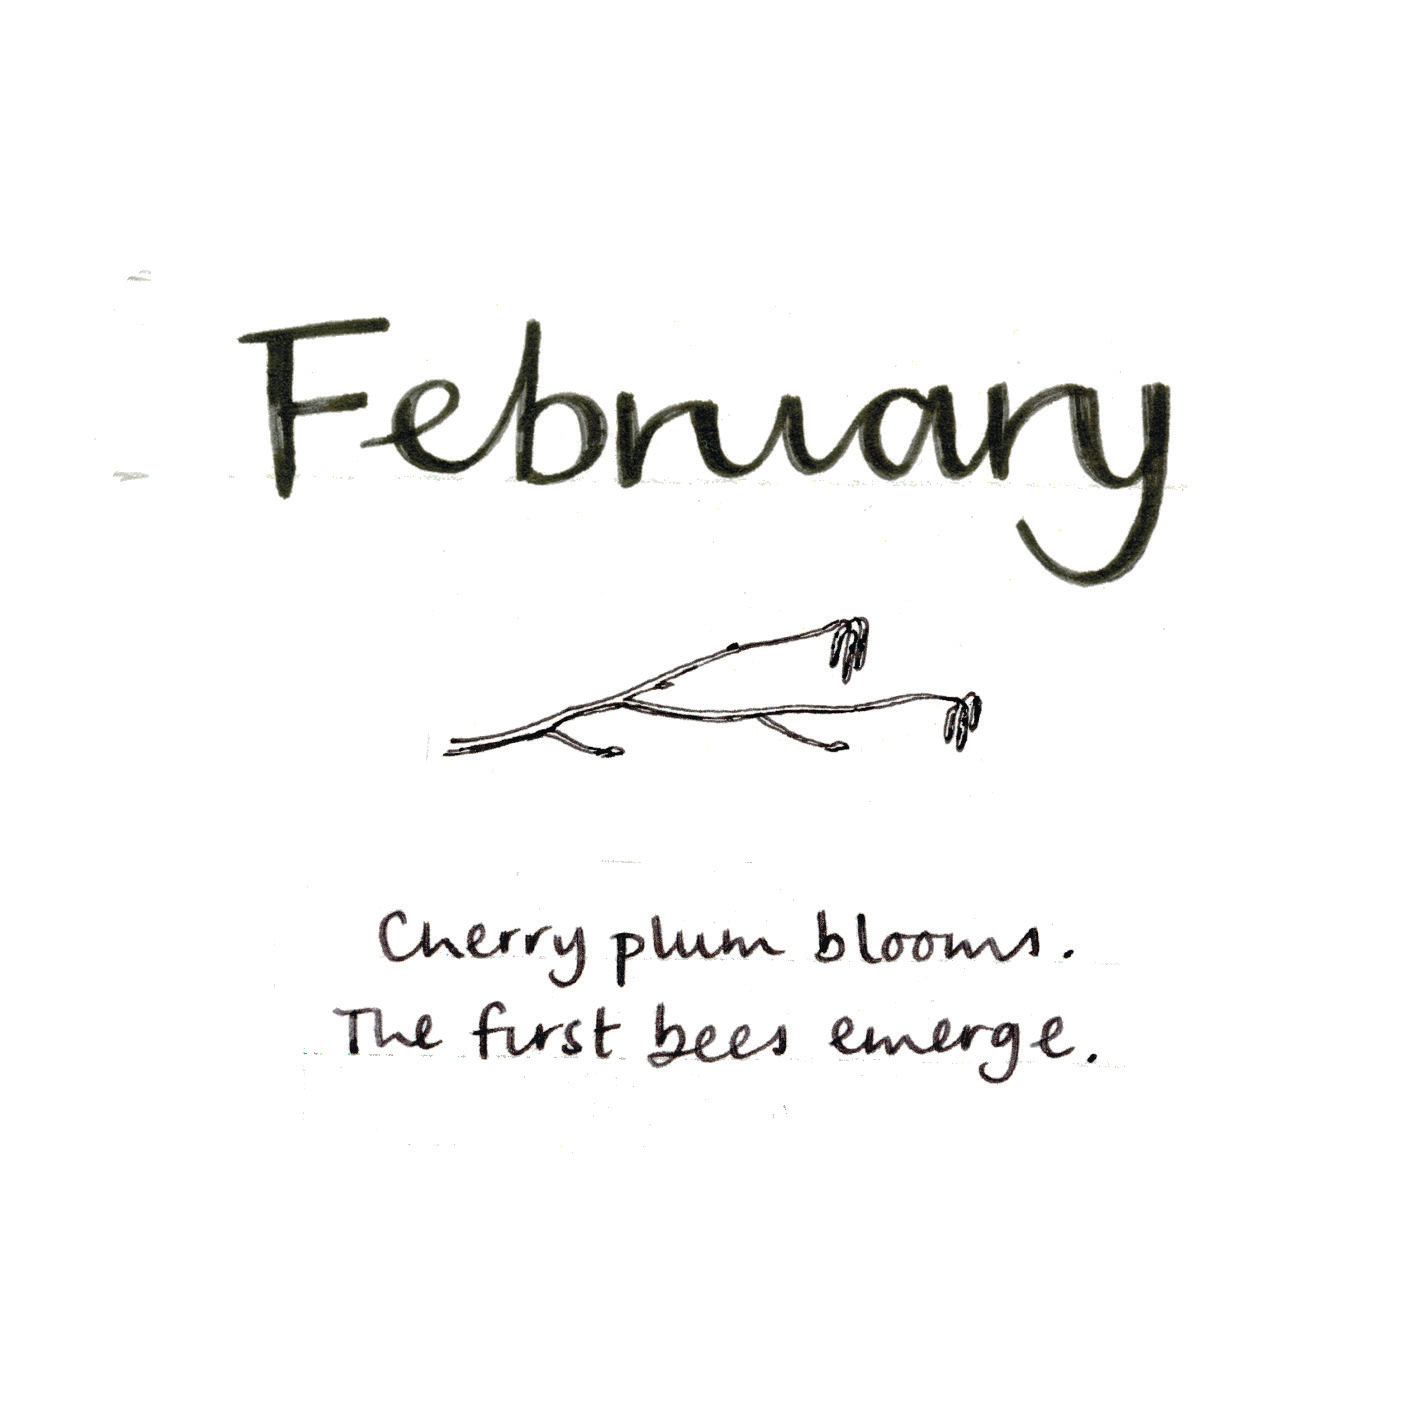 February
Cherry plum blooms.
The first bees emerge.